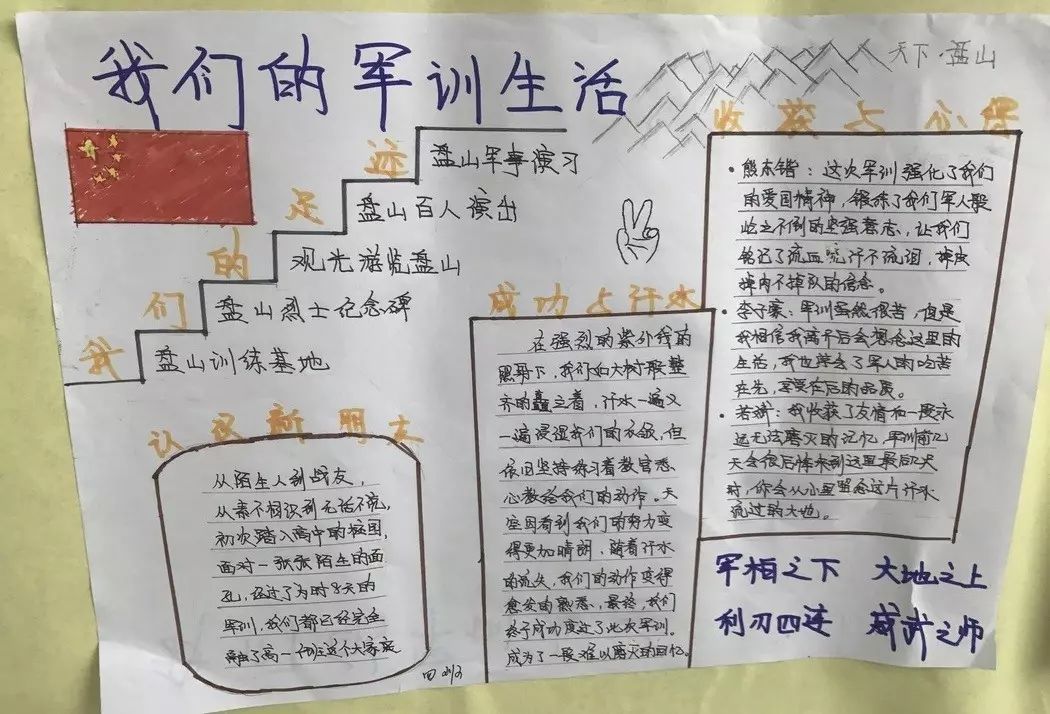 我们的军训生活
天下·盘山
我们的足迹
盘山军事演习
盘山百人演出
观光游览盘山
盘山烈士纪念碑
盘山训练基地
认识新朋友
从陌生人到战友，
从素不相识到无话不说，
初次踏入高中的校园，
面对一张张陌生的面
孔，经过了为时8天的
军训，我们都已经完全
融了高一 这个大家庭
成功与汗水
在强烈的紫外线的
照耀下，我们如大树般整
齐的矗立着，汗水一遍又
一遍浸湿我们的衣领，但
依旧坚持练习着教官悉
心教给我们的动作。天
空因看到我们的努力变
得更加晴朗，随着汗水
的流失，我们的动作变得
愈发的熟悉，最终，我们
终于成功度过了此次军训。
成为了一段难以磨灭的回忆。
收获与价值
·熊东锴：这次军训强化了我们
的爱国精神，锻炼了我们军人般
屹立不倒的坚强意志，让我们
铭记了流血流汗不流泪，掉皮
掉肉不掉队的信念。
·李子豪：军训虽然很苦，但是
我相信我离开后会想念这里的
生活，我也学会了军人的吃苦
在先，享受在后的品质。
·若：我收获了友情和一段永
远无法磨灭的记忆，军训前几
天会很后悔来到这里最后几天
时，你会从心里留恋这片汗水
流过的大地。
军相之下 大地之上
利刃四连 威武之师